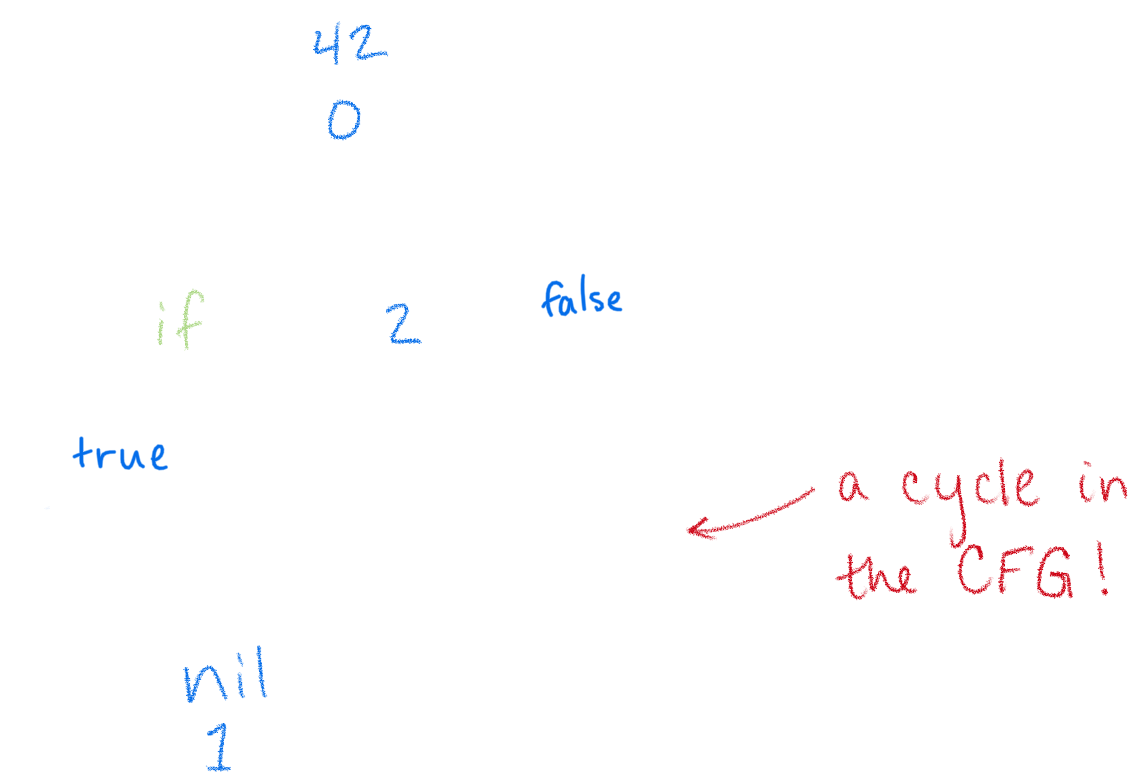 42
0
if 2 false
true
a cycle in
the CFG!
nil
1